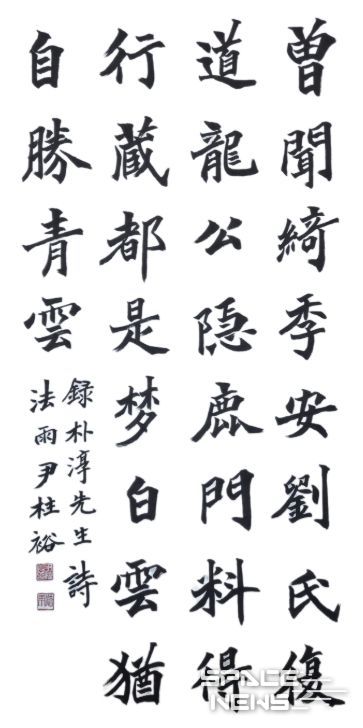 曾聞綺季安劉氏復
道龍公隐鹿門料得
行蔵都是梦白雲猶
自勝青雲
録朴淳先生詩
法雨尹桂裕
SPACE NEWS